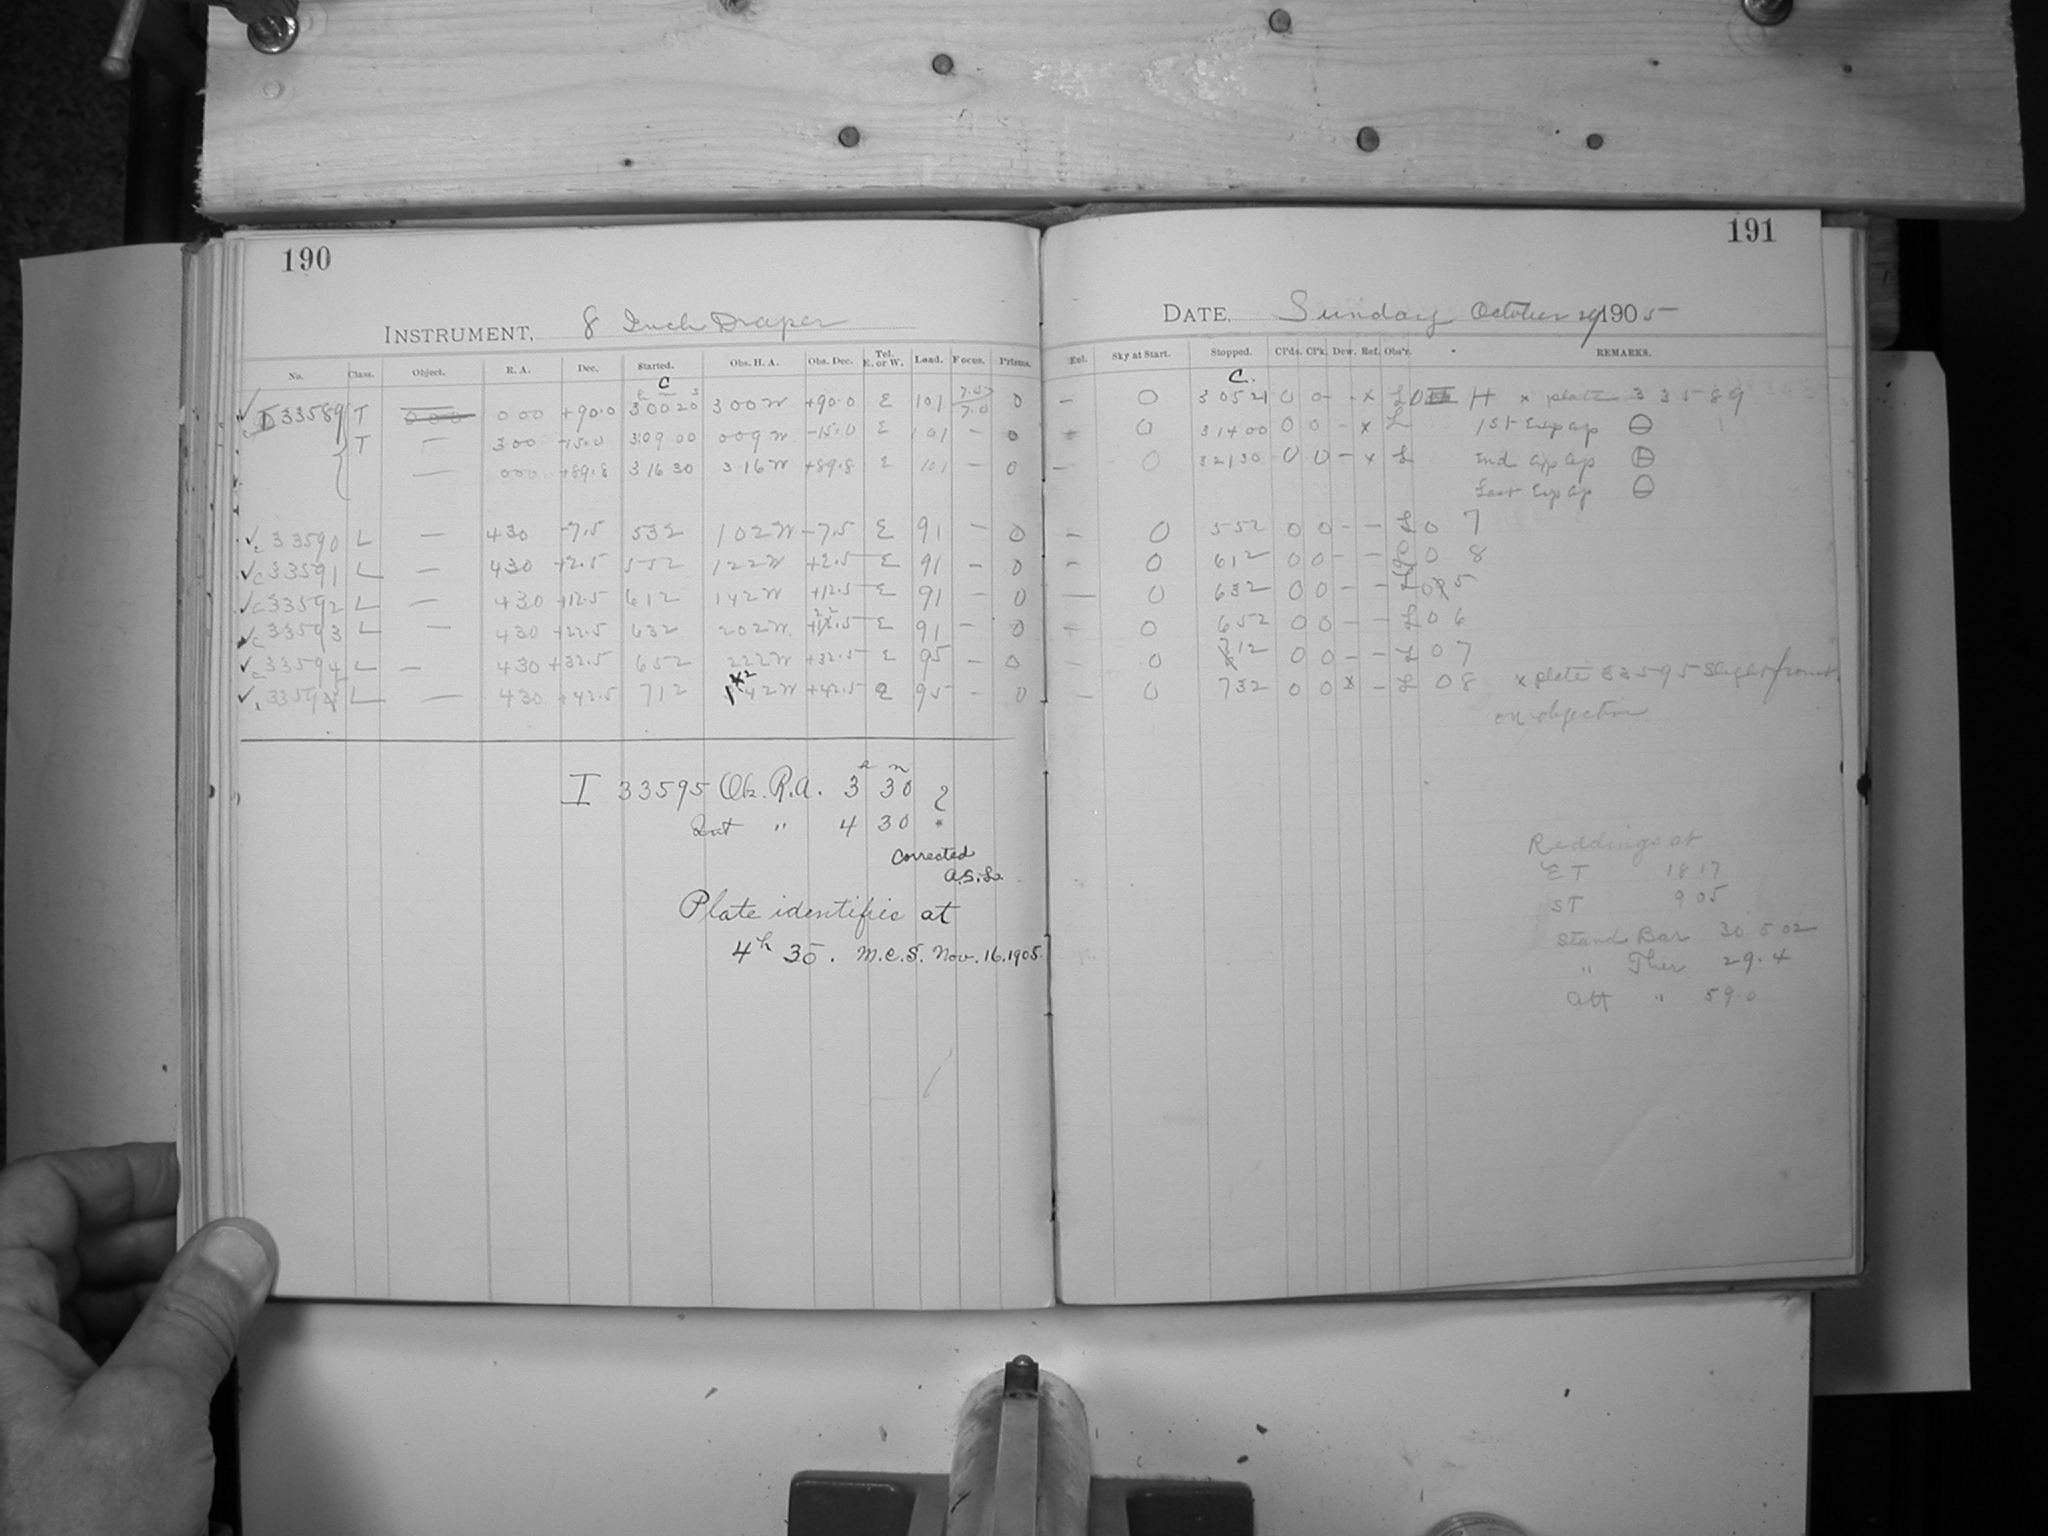 190
191
INSTRUMENT, 8 Inch Draper
DATE, Sunday October 29 1905
No. Class. Object. R. A. Dec. Started. Obs. H. A. Obs. Dec. Tel. E. or W. Load. Focus. Prisms.
Ent. Sky at Start. Stopped. Cl'ds. Cl'k. Dew. Ref. Obs'r. REMARKS.
C
C.
h m s
✓ I 33589 T 000 0 00 +90.0 3 00 20 3 00 W +90.0 E 101 7.0 7.0 0
- 0 3 05 21 0 0 - - x L 0 H x plate 33589
T — 3 00 -15.0 3 09 00 0 09 W -15.0 E 101 - 0
0 3 14 00 0 0 - x L 1st Exp ap
— 0 00 +89.8 3 16 30 3 16 W +89.8 E 101 - 0
- 0 3 21 30 0 0 - x L 2nd Exp ap
Last Exp ap
✓c 33590 L — 4 30 -7.5 5 32 1 02 W -7.5 E 91 - 0
- 0 5 52 0 0 - - L 0 7
✓c 33591 L — 4 30 +2.5 5 52 1 22 W +2.5 E 91 - 0
- 0 6 12 0 0 - - L 0 8
✓c 33592 L — 4 30 +12.5 6 12 1 42 W +12.5 E 91 - 0
— 0 6 32 0 0 - - L 0 5
✓c 33593 L — 4 30 +22.5 6 32 2 02 W +22.5 E 91 - 0
- 0 6 52 0 0 - - L 0 6
✓c 33594 L — 4 30 +32.5 6 52 2 22 W +32.5 E 95 - 0
- 0 7 12 0 0 - - L 0 7
✓ 33595 L — 4 30 +42.5 7 12 42 W +42.5 E 95 - 0
- 0 7 32 0 0 x - L 0 8 x plate 33595 slight frost
on objective
I 33595 Ob. R.A. 3h 30m ?
Int " 4 30 *
Corrected
A.S.L.
Plate identifies at
4h 35. M.E.S. Nov. 16. 1905.
Reddings at
ET 18 17
ST 9 05
Stand Bar 30 5 02
" Ther 29.4
Att " 59.0